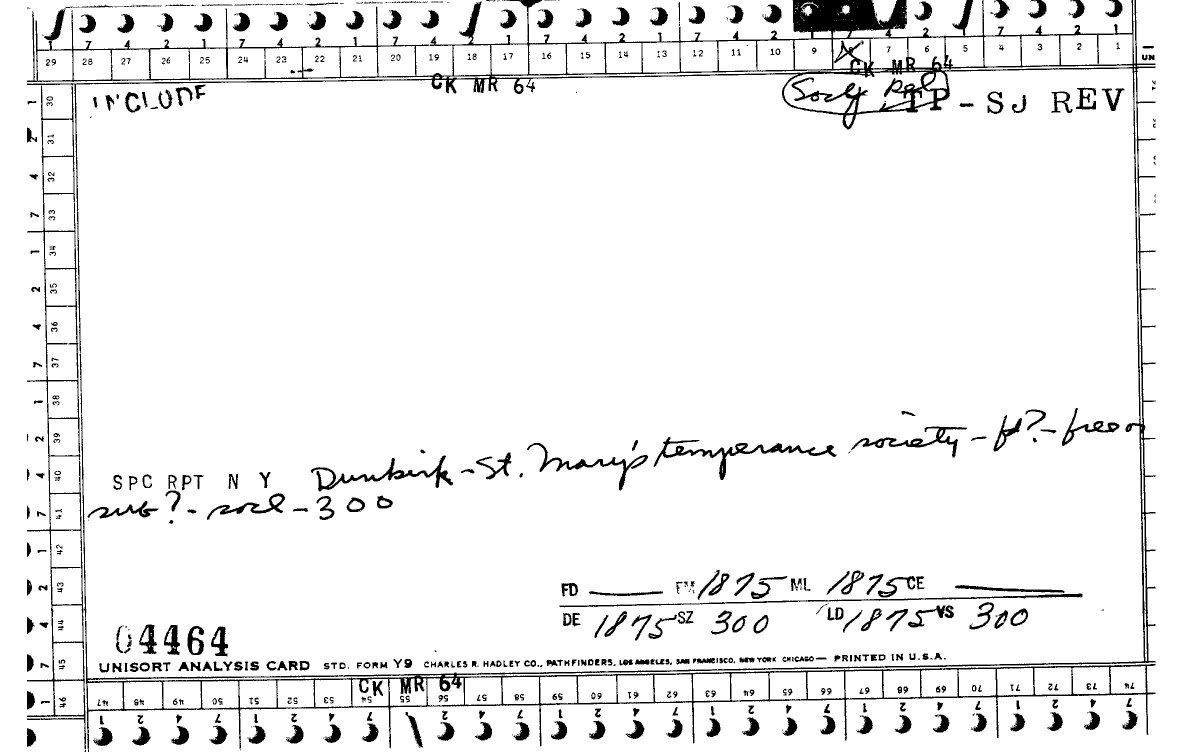 7 4 2 1 7 4 2 1 7 4 2 1 7 4 2 1 7 4 2 1 7 4 2 1
29 28 27 26 25 24 23 22 21 20 19 18 17 16 15 14 13 12 11 10 9 8 7 6 5 4 3 2 1
UN
CK MR 64
CK MR 64
INCLUDE
Socy Rel
TP-SJ REV
1 30
2 31
4 32
7 33
1 34
2 35
4 36
7 37
1 38
2 39
4 40
7 41
1 42
2 43
4 44
7 45
1 46
SPC RPT N Y Dunkirk - St. Mary's temperance society - fd? - free or
sub? - socl - 300
FD — EM 1875 ML 1875 CE —
DE 1875 SZ 300 LD 1875 VS 300
04464
UNISORT ANALYSIS CARD STD. FORM Y9 CHARLES R. HADLEY CO., PATHFINDERS, LOS ANGELES, SAN FRANCISCO, NEW YORK CHICAGO — PRINTED IN U.S.A.
CK MR 64
47 48 49 50 51 52 53 54 55 56 57 58 59 60 61 62 63 64 65 66 67 68 69 70 71 72 73 74
1 2 4 7 1 2 4 7 2 4 7 1 2 4 7 1 2 4 7 1 2 4 7 1 2 4 7